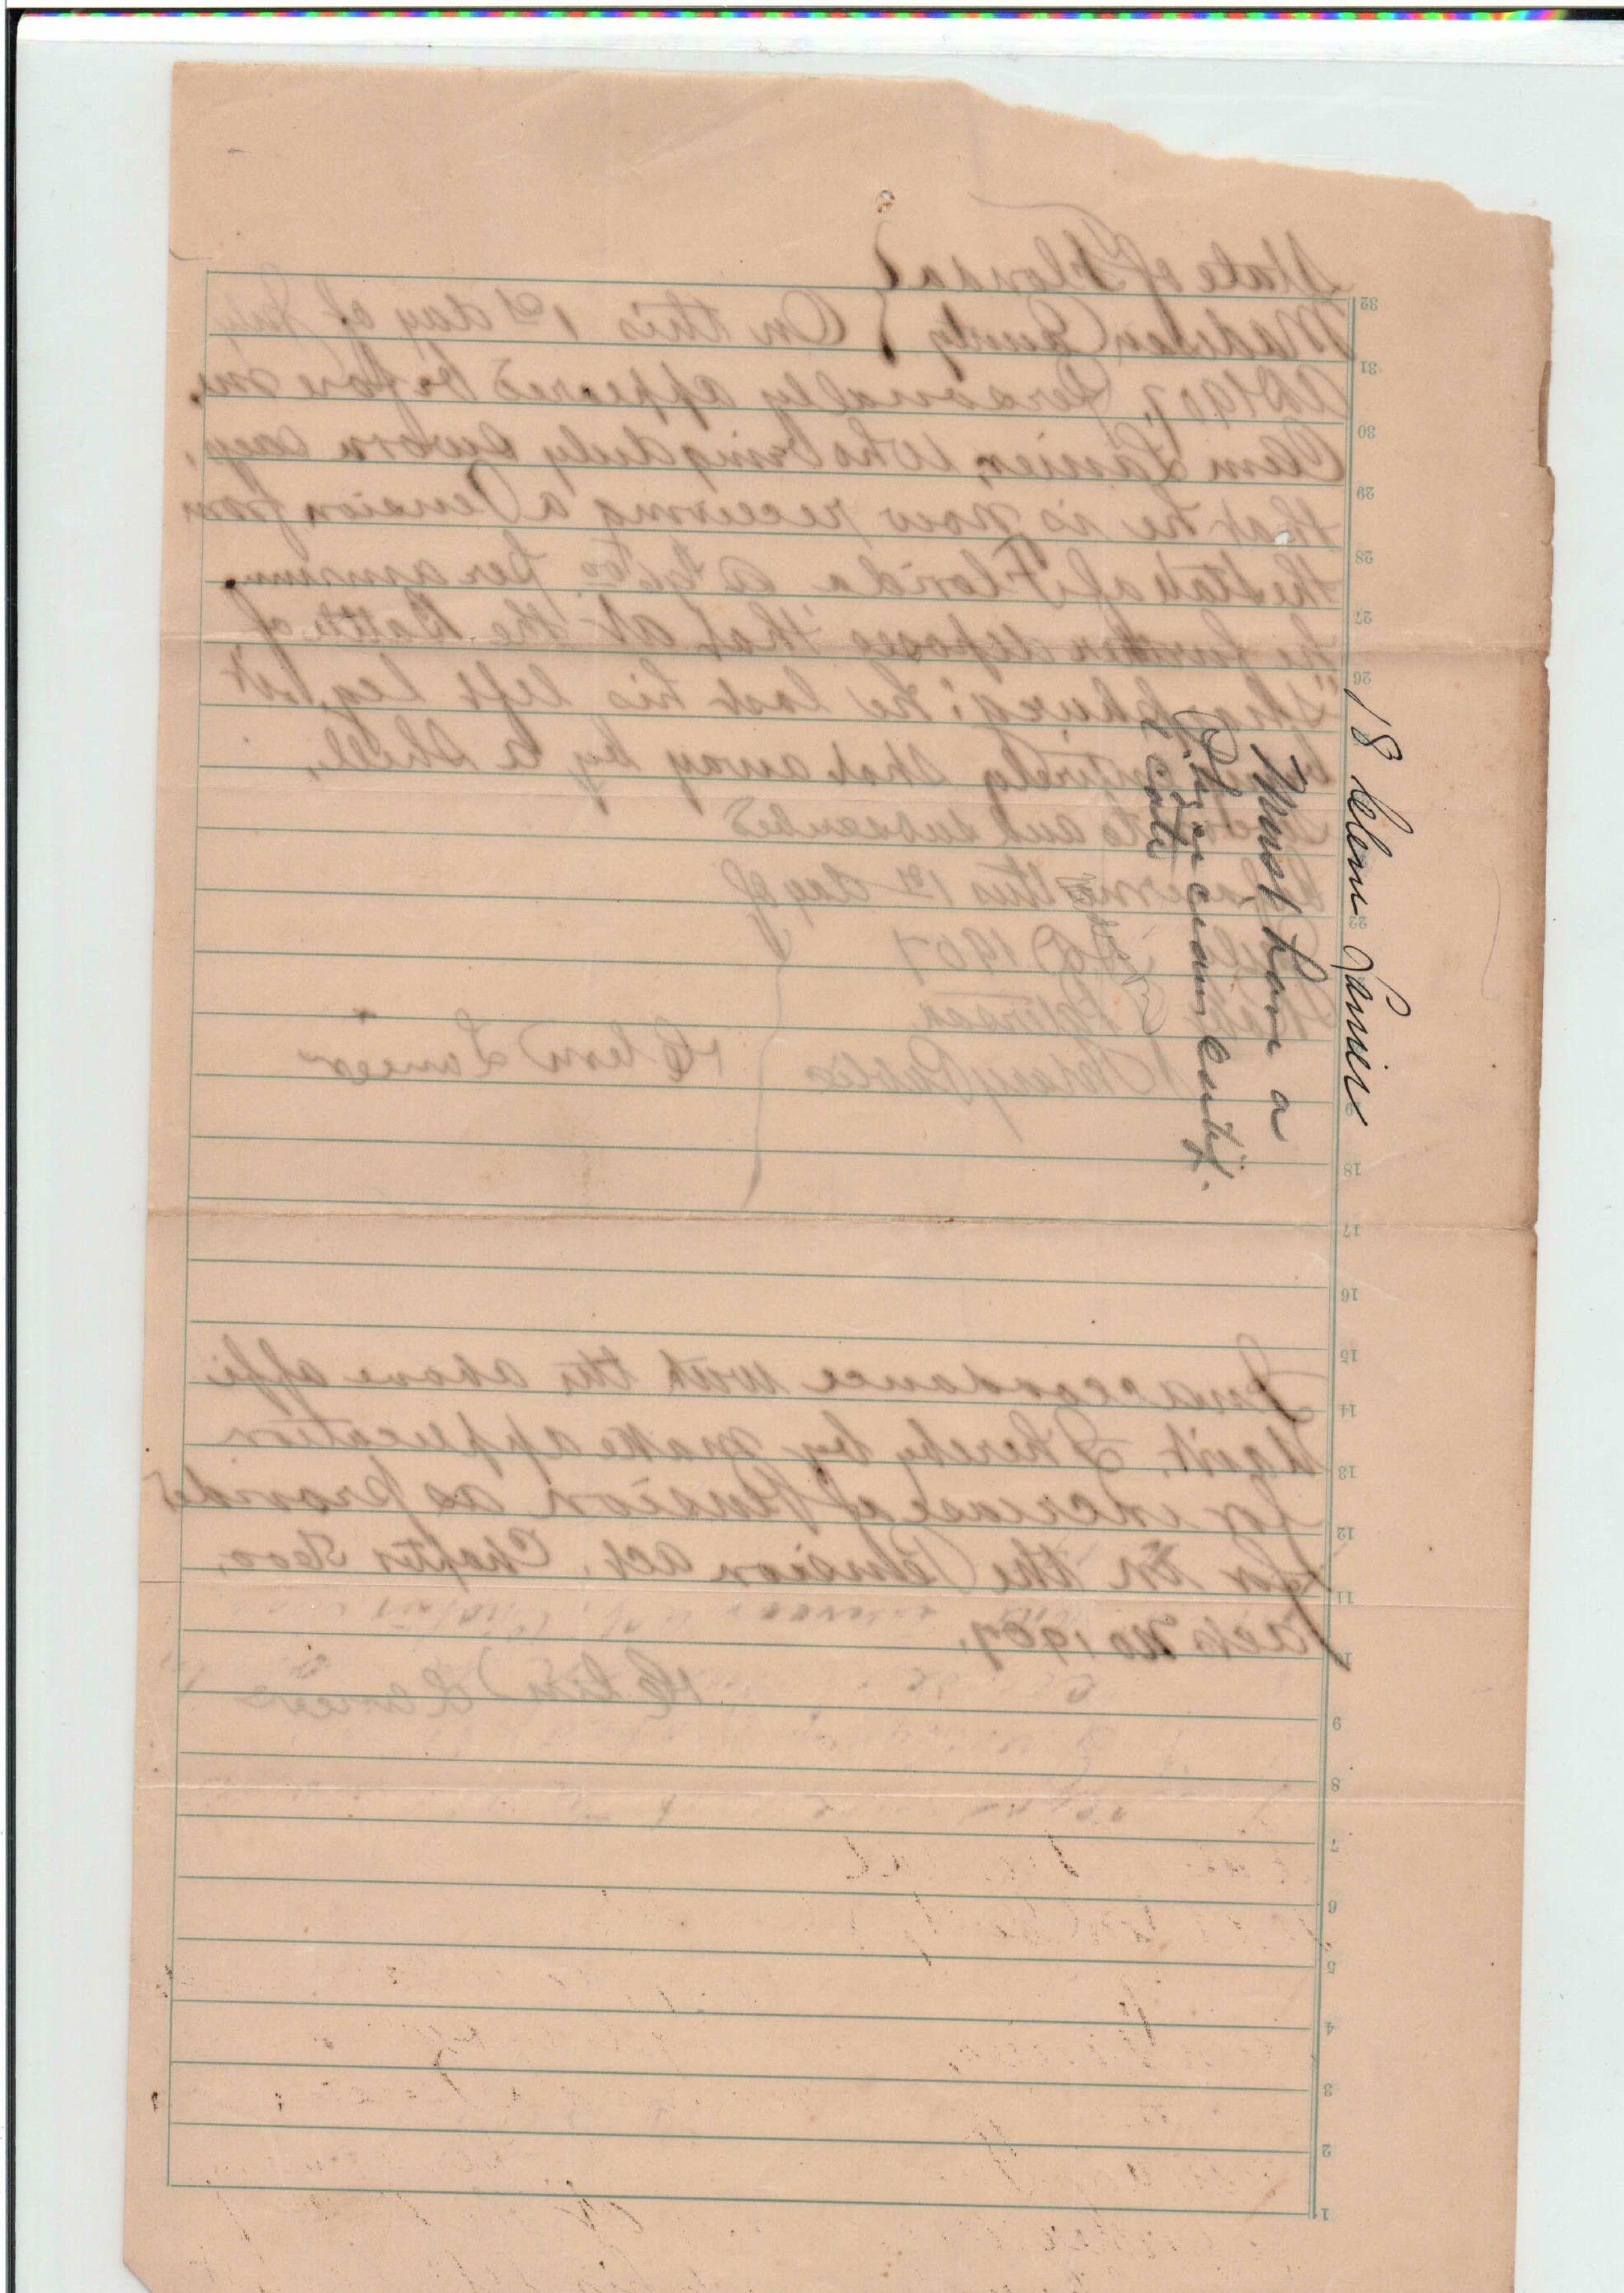 18 Clem Lanier
Must have a
Physician Certif-
icate
State of Florida
Madison County } On this 1st day of July
AD 1907, Personally appeared before me,
Clem Lanier, who being duly sworn says,
that he is now receiving a Pension from
the State of Florida @ per annum
he further deposes that at the Battle of
he lost his left leg, it
being entirely shot away by a shell,
Sworn to and subscribed
before me this 1st day of
July AD 1907
Notary Public
Clem Lanier
In accordance with the above affi
davit. I hereby by make application
for increase of Pension as provided
for in the Pension act. Chapter
Acts 1907.
Clem Lanier
32
31
30
29
28
27
26
22
18
17
16
15
14
13
12
11
10
9
8
7
6
5
4
3
2
1